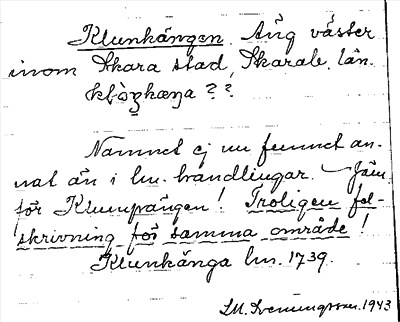 Klunkängen. Äng väster
inom Skara stad, Skarab. län.
klòŋkæŋa ??
Namnet ej nu funnet an-
nat än i lm. handlingar. – Jäm
för Klumpängen! Troligen fel-
skrivning för samma område!
Klunkänga lm. 1739.
S.M. Svenungsson. 1943